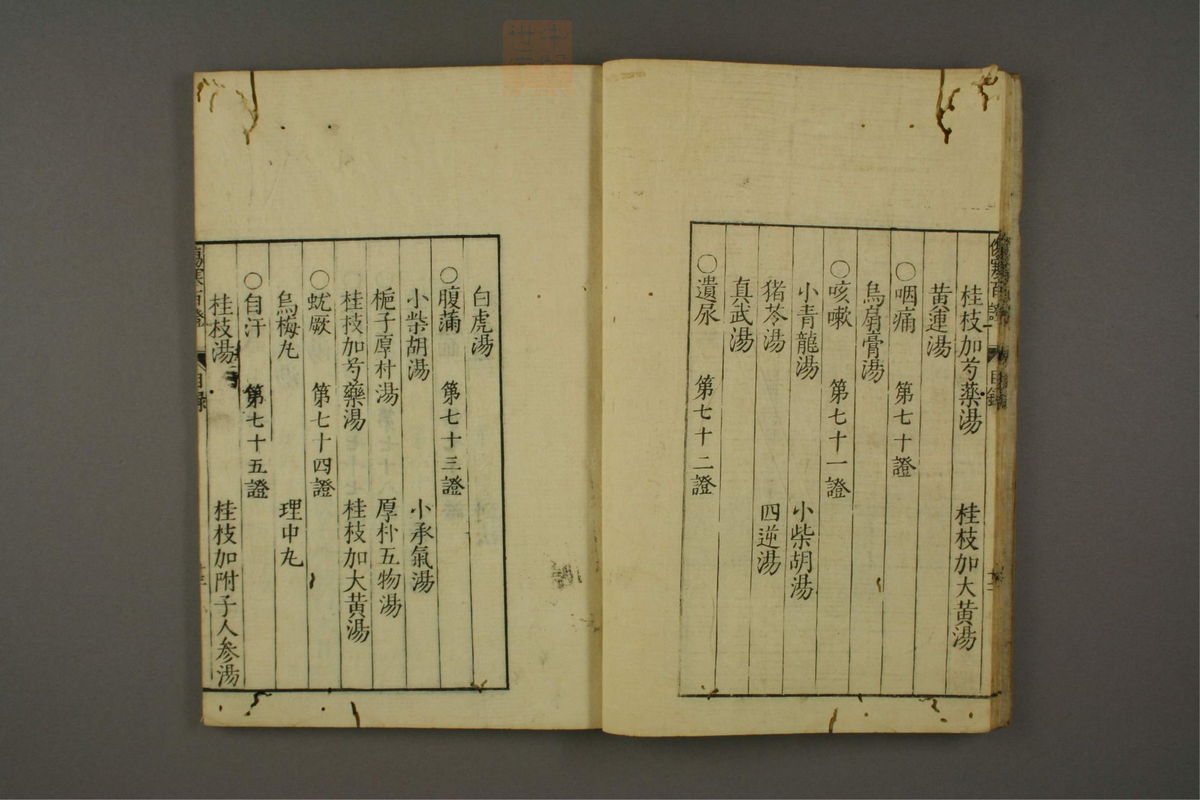 桂枝加芍藥湯　桂枝加大黄湯
黄連湯
○咽痛　第七十證
烏扇膏湯
○咳嗽　第七十一證
小青龍湯　小柴胡湯
豬苓湯　四逆湯
真武湯
○遺尿　第七十二證
白虎湯
○腹滿　第七十三證
小柴胡湯　小承氣湯
梔子厚朴湯　厚朴五物湯
桂枝加芍藥湯　桂枝加大黄湯
○蚘厥　第七十四證
烏梅丸　理中丸
○自汗　第七十五證
桂枝湯　桂枝加附子人参湯
傷寒百證　目録